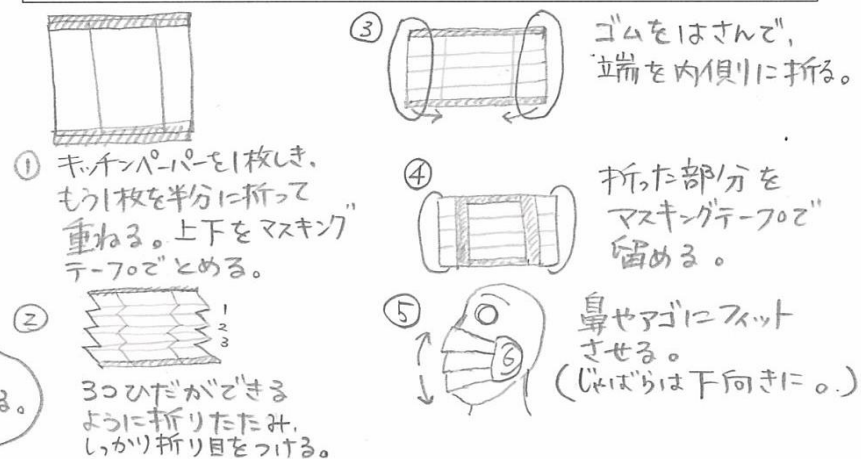 ① キッチンペーパーを1枚しき、
もう1枚を半分に折って
重ねる。上下をマスキング
テープでとめる。
②
1
2
3
3つひだができる
ように折りたたみ、
しっかり折り目をつける。
る。
③ ゴムをはさんで、
端を内側に折る。
④ 折った部分を
マスキングテープで
留める。
⑤ 鼻やアゴにフィット
させる。
(じゃばらは下向きに。)